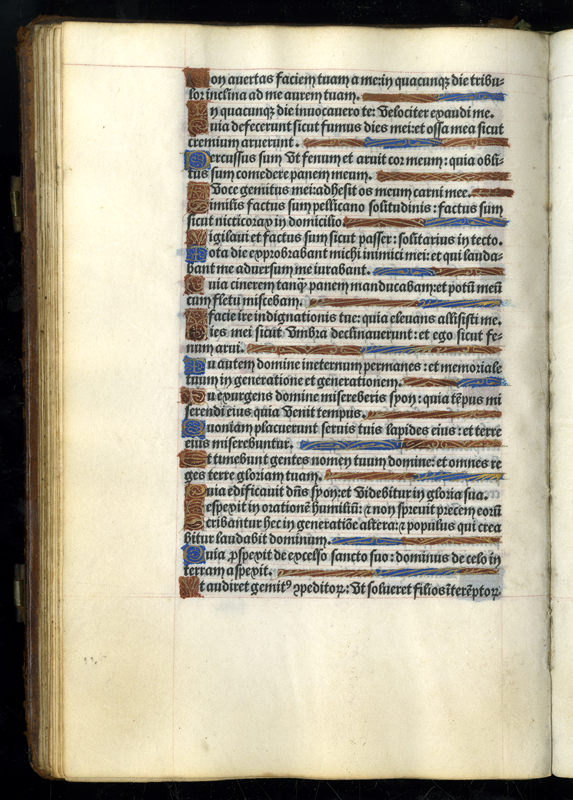 Non auertas faciem tuam a me: in quacunqꝫ die tribu-
lor inclina ad me aurem tuam.
In quacunqꝫ die inuocauero te: velociter exaudi me.
Quia defecerunt sicut fumus dies mei: et ossa mea sicut
cremium aruerunt.
Percussus sum vt fenum et aruit cor meum: quia obli-
tus sum comedere panem meum.
A voce gemitus mei: adhesit os meum carni mee.
Similis factus sum pellicano solitudinis: factus sum
sicut nicticorax in domicilio
Vigilaui et factus sum sicut passer: solitarius in tecto.
Tota die exprobrabant michi inimici mei: et qui lauda-
bant me aduersum me iurabant.
Quia cinerem tanqꝫ panem manducabam: et potū meū
cum fletu miscebam.
A facie ire indignationis tue: quia eleuans allisisti me.
Dies mei sicut vmbra declinauerunt: et ego sicut fe-
num arui.
Tu autem domine ineternum permanes: et memoriale
tuum in generatione et generationem.
Tu exurgens domine misereberis syon: quia tēpus mi
serendi eius quia venit tempus.
Quoniam placuerunt seruis tuis lapides eius: et terre
eius miserebuntur.
Et timebunt gentes nomen tuum domine: et omnes re
ges terre gloriam tuam.
Quia edificauit dn̄s syon: et videbitur in gloria sua.
Respexit in orationē humiliū: ⁊ non spreuit precem eorū
Scribantur hec in generatiōe altera: ⁊ populus qui crea
bitur laudabit dominum.
Quia ꝓspexit de excelso sancto suo: dominus de celo in
terram aspexit.
Vt audiret gemitꝰ ↄpeditoꝝ: vt solueret filios īterēptoꝝ